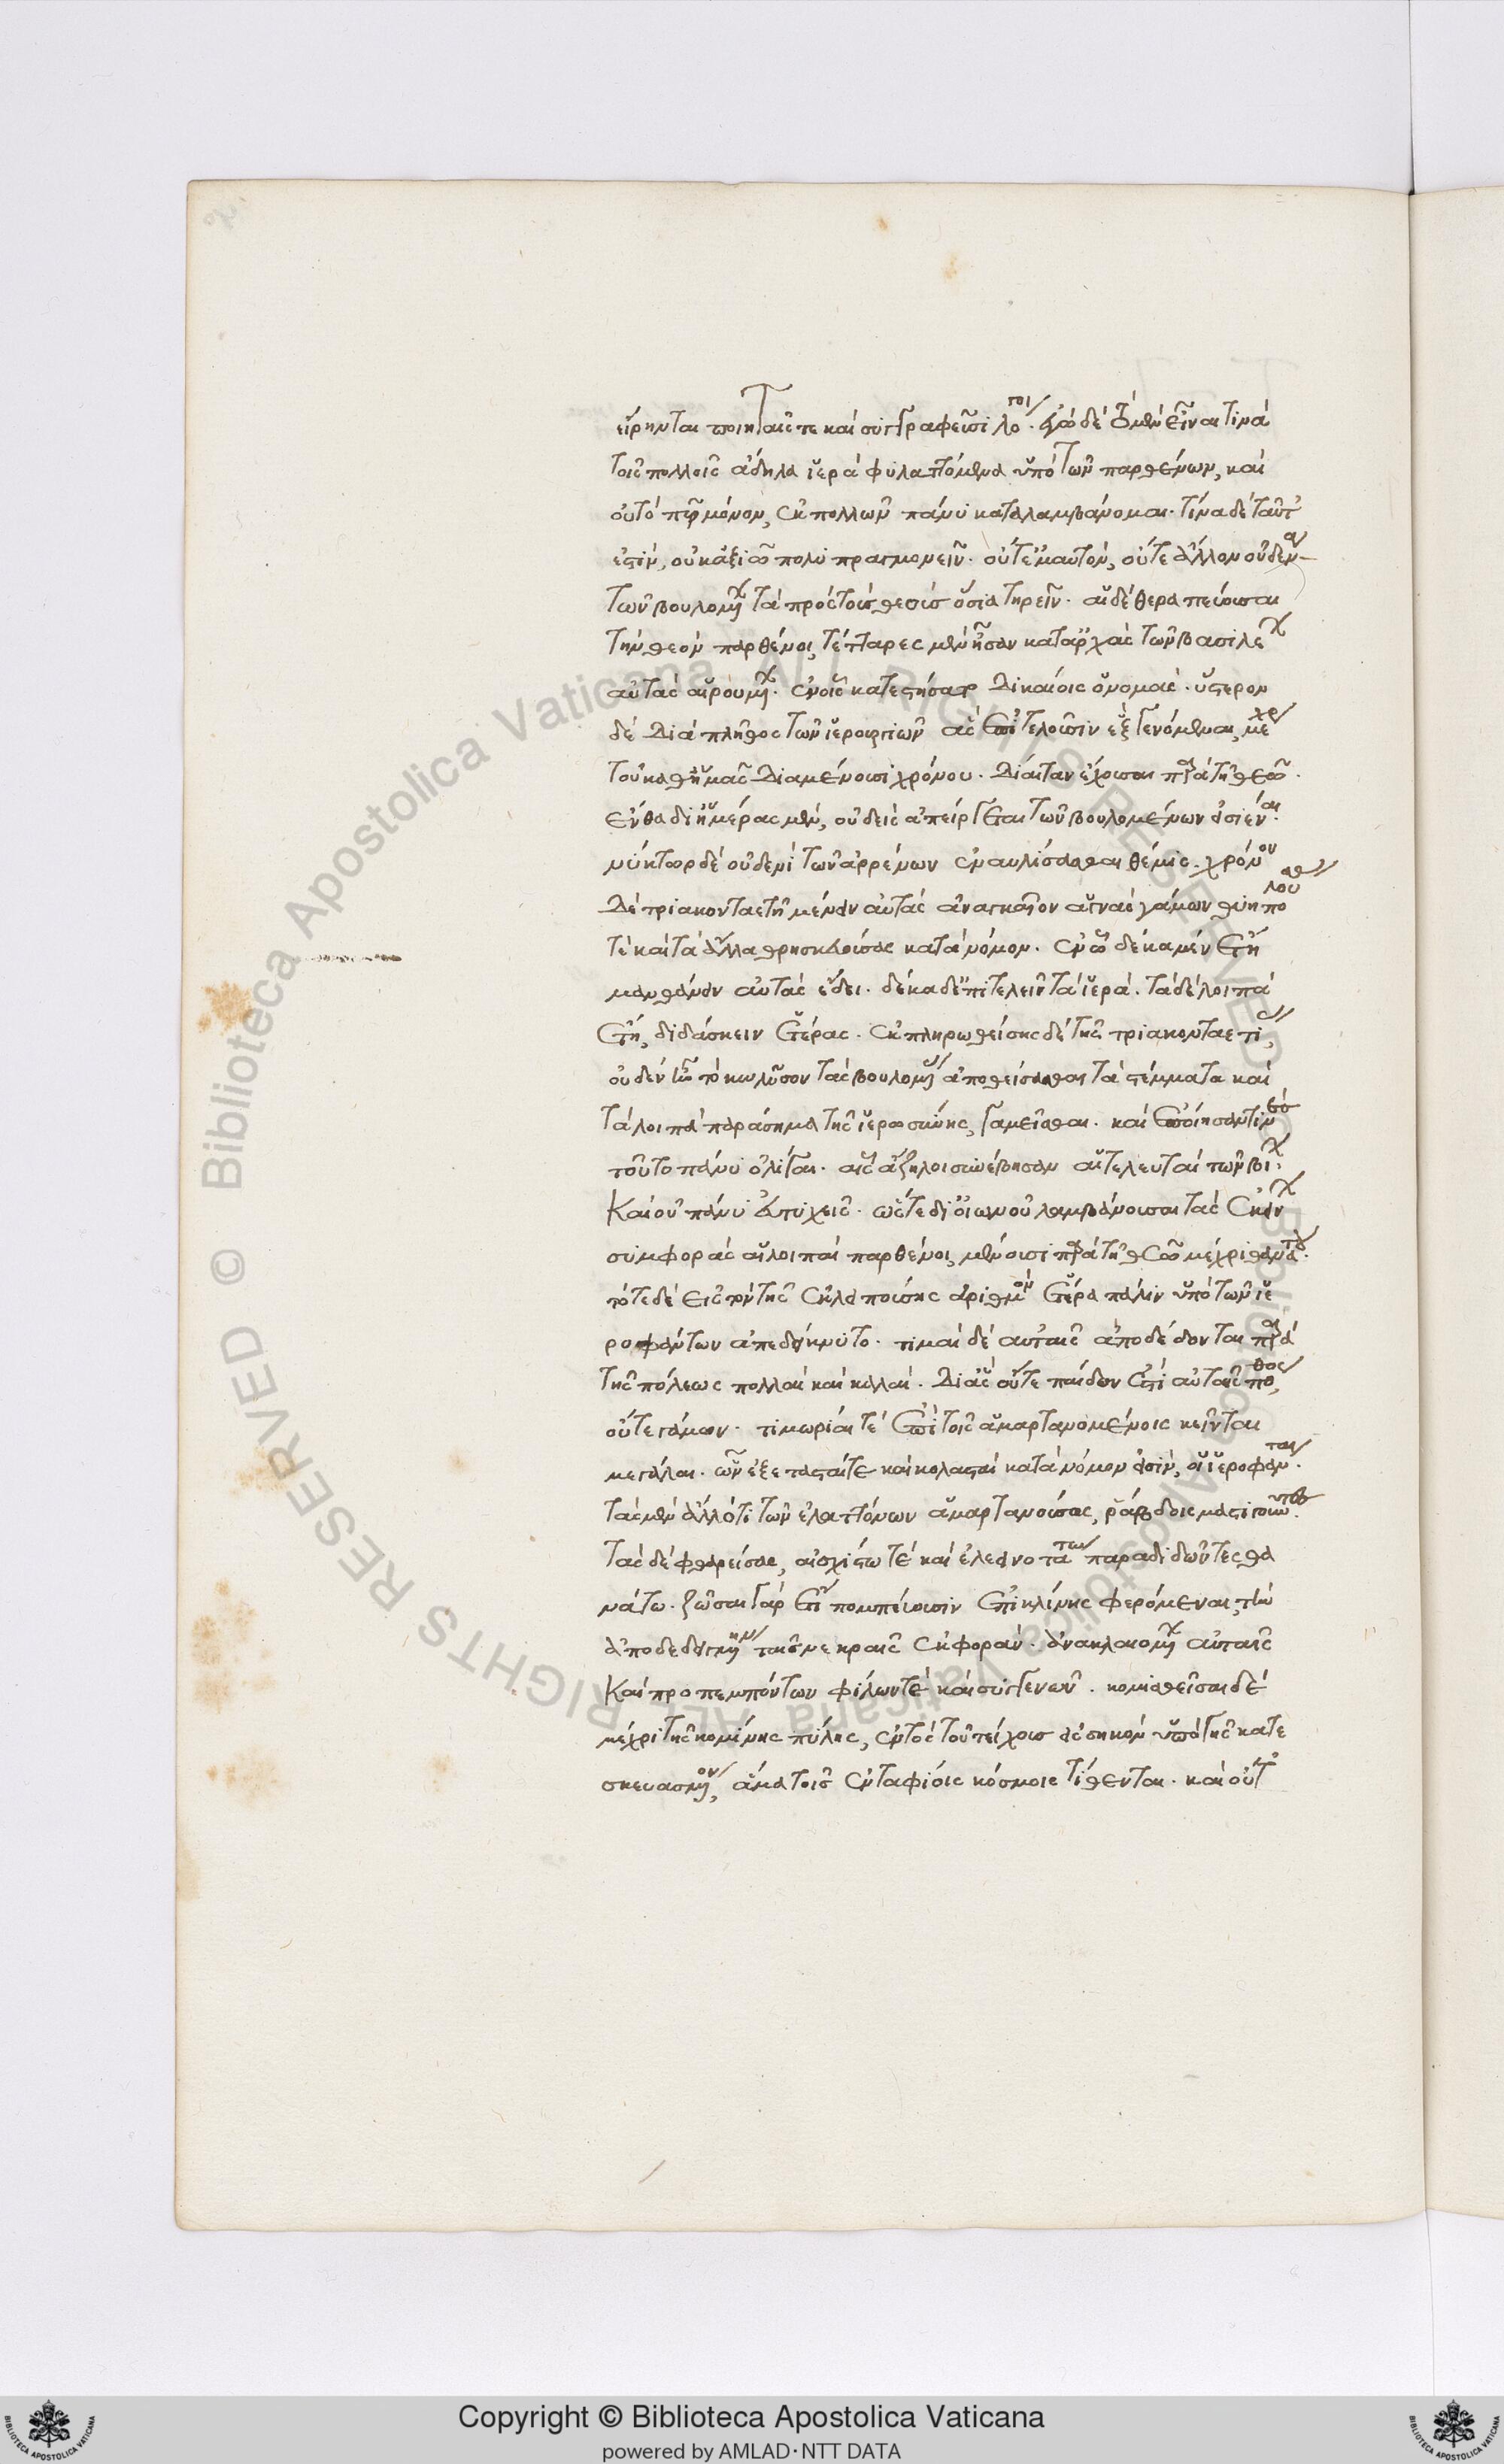 εἴρηνται ποιηταῖς τε καὶ συγγραφεῦσι λοιποί. ἐγὼ δὲ ὅτι μὲν εἶναι τινὰ
τοῖς πολλοῖς ἄδηλα ἱερὰ φυλαττόμενα ὑπὸ τῶν παρθένων, καὶ
οὐ τὸ πῦρ μόνον, ἐκ πολλῶν πάνυ καταλαμβάνομαι. τίνα δὲ ταῦτ'
ἐστὶν, οὐκ ἀξιῶ πολυπραγμονεῖν. οὔτε ἐμαυτὸν, οὔτε ἄλλον οὐδένα
τῶν βουλομένων τὰ πρὸς τοὺς θεοὺς ὅσια τηρεῖν. αἱ δὲ θεραπεύουσαι
τὴν θεὸν παρθένοι, τέτταρες μὲν ἦσαν κατ' ἀρχὰς τῶν βασιλέων
αὐτὰς αἱρουμένων. ἐν οἷς κατεστήσατο δικαίοις ὁ νομᾶς. ὕστερον
δὲ διὰ πλῆθος τῶν ἱερουργιῶν ἃς ἐπιτελοῦσιν ἓξ γενόμεναι, μέχρι
τοῦ καθ' ἡμᾶς διαμένουσι χρόνου. δίαιταν ἔχουσαι παρὰ τῇ θεῷ.
ἔνθα δι' ἡμέρας μὲν, οὐδεὶς ἀπείργεται τῶν βουλομένων εἰσιέναι.
νύκτωρ δὲ οὐδενὶ τῶν ἀρρένων ἐναυλίσασθαι θέμις. χρόνον
δὲ τριακονταετῆ μένειν αὐτὰς ἀναγκαῖον ἁγνὰς γάμων θυηπολούσας
τὲ καὶ τὰ ἄλλα θρησκευούσας κατὰ νόμον. ἐν ᾧ δέκα μὲν ἔτη
μανθάνειν αὐτὰς ἔδει. δέκα δ' ἐπιτελεῖν τὰ ἱερά. τὰ δὲ λοιπὰ
ἔτη, διδάσκειν ἑτέρας. ἐκπληρωθείσης δὲ τῆς τριακονταετίας,
οὐδὲν ἦν τὸ κωλῦσον τὰς βουλομένας ἀποθείσασθαι τὰ στέμματα καὶ
τὰ λοιπὰ παράσημα τῆς ἱερωσύνης, γαμεῖσθαι. καὶ ἐποίησάν τινες
τοῦτο πάνυ ὀλίγαι. αἷς ἄζηλοι συνέβησαν αἱ τελευταὶ τῶν βίων.
καὶ οὐ πάνυ εὐτυχεῖς. ὥστε δι' οἰωνοῦ λαμβάνουσαι τὰς ἐκείνων
συμφορὰς αἱ λοιπαὶ παρθένοι, μένουσι παρὰ τῇ θεῷ μέχρι θανάτου.
τότε δὲ εἰς τὸν τῆς ἐκλιπούσης ἀριθμὸν ἑτέρα πάλιν ὑπὸ τῶν ἱε
ροφάντων ἀπεδείκνυτο. τιμαὶ δὲ αὐταῖς ἀποδέδονται παρὰ
τῆς πόλεως πολλαὶ καὶ καλαί. δι' ἃς οὔτε παίδων ἐστὶ αὐταῖς πόθος,
οὔτε γάμων. τιμωρίαι τὲ ἐπὶ τοῖς ἁμαρτανομένοις κεῖνται
μεγάλαι. ὧν ἐξετασταί τε καὶ κολασταὶ κατὰ νόμον εἰσὶν, οἱ ἱεροφάνται.
τὰς μὲν ἄλλό τι τῶν ἐλαττόνων ἁμαρτανούσας, ῥάβδοις μαστιγοῦντες.
τὰς δὲ φθαρείσας, αἰσχίστω τὲ καὶ ἐλεεινοτάτω παραδιδόντες θα
νάτω. ζῶσαι γὰρ ἔτι πομπεύουσιν ἐπὶ κλίνης φερόμεναι, τὴν
ἀποδεδειγμένην τοῖς νεκροῖς ἐκφοράν. ἀνακλαιομένων αὐταῖς
καὶ προπεμπόντων φίλων τὲ καὶ συγγενῶν. κομισθεῖσαι δὲ
μέχρι τῆς κολίνης πύλης, ἐντὸς τοῦ τείχους εἰς σηκὸν ὑπὸ γῆς κατε
σκευασμένον, ἅμα τοῖς ἐνταφίοις κόσμοις τίθενται. καὶ οὔτ'
Copyright © Biblioteca Apostolica Vaticana
powered by AMLAD·NTT DATA